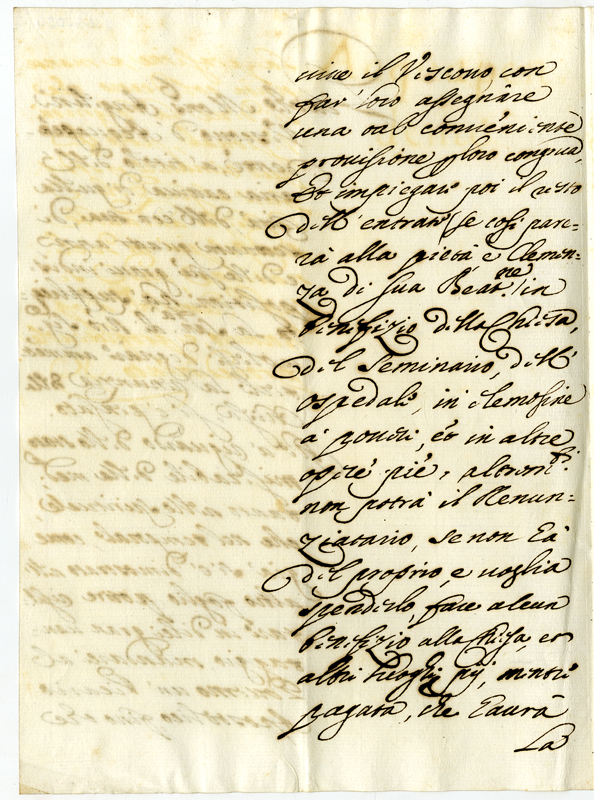 uive il Vescovo con
far' loro assegnare
una tal conveniente
provisione p loro congrua,
et impiegar' poi il resto
dell' entrate (se così par-
rà alla pietà e Clemen-
za di Sua Beat.ne) in
benefizio della Chiesa,
del Seminario, dell'
ospedale, in elemosine
a poveri, et in altre
opere pie, altrim.ti
non potrà il Renun-
ziatario, se non hà
del proprio, e voglia
spenderlo, fare alcun
benefizio alla Chiesa, et
altri luoghi pij, mentre
pagata, che haurà
La